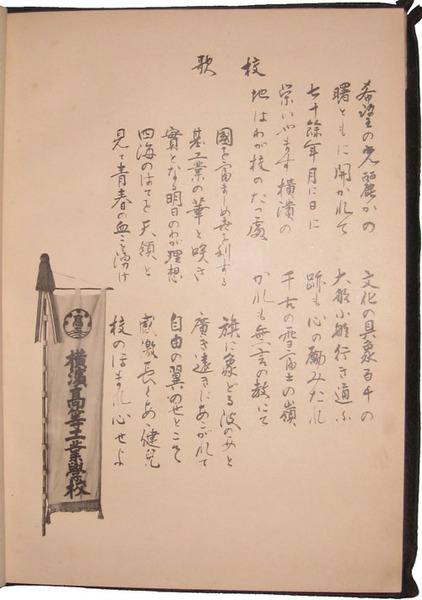 校歌
希望の光麗かの
曙ともに開かれて
七十餘年月に日に
栄いやます横濱の
地はわが校のたつ處
文化の具象百千の
大船小船行き通ふ
跡も心の励みたれ
千古の雪富士の嶺
かれも無言の教にて
國を富ましめ世を利する
基工業の華と咲き
實となる明日のわが理想
四海のはてを天領と
見て青春の血こそ湧け
旗に象どる波の如と
廣き遠きにあこがれて
自由の翼のせてこそ
感激長くあれ健児
校のほまれ心せよ
横濱高等工業學校